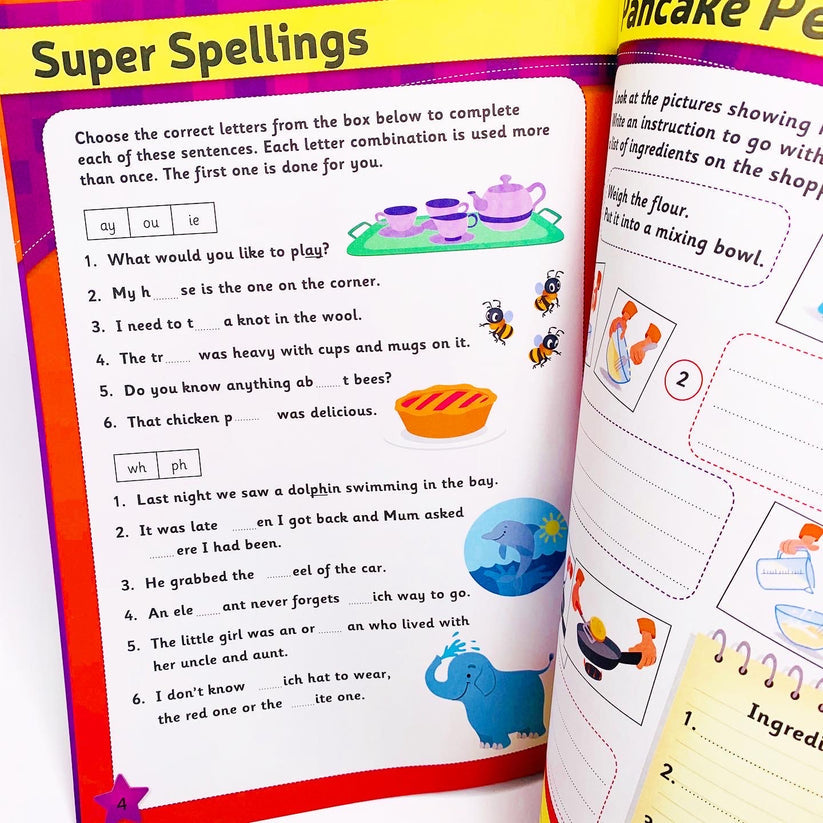 Super Spellings
Choose the correct letters from the box below to complete
each of these sentences. Each letter combination is used more
than once. The first one is done for you.
ay ou ie
1. What would you like to play?
2. My h........se is the one on the corner.
3. I need to t........ a knot in the wool.
4. The tr........ was heavy with cups and mugs on it.
5. Do you know anything ab........t bees?
6. That chicken p........ was delicious.
wh ph
1. Last night we saw a dolphin swimming in the bay.
2. It was late ........en I got back and Mum asked
........ere I had been.
3. He grabbed the ........eel of the car.
4. An ele........ant never forgets ........ich way to go.
5. The little girl was an or........an who lived with
her uncle and aunt.
6. I don't know ........ich hat to wear,
the red one or the ........ite one.
4
Pancake
Look at the pictures showing
Write an instruction to go with
list of ingredients on the
Weigh the flour.
Put it into a mixing bowl.
2
1.
2.